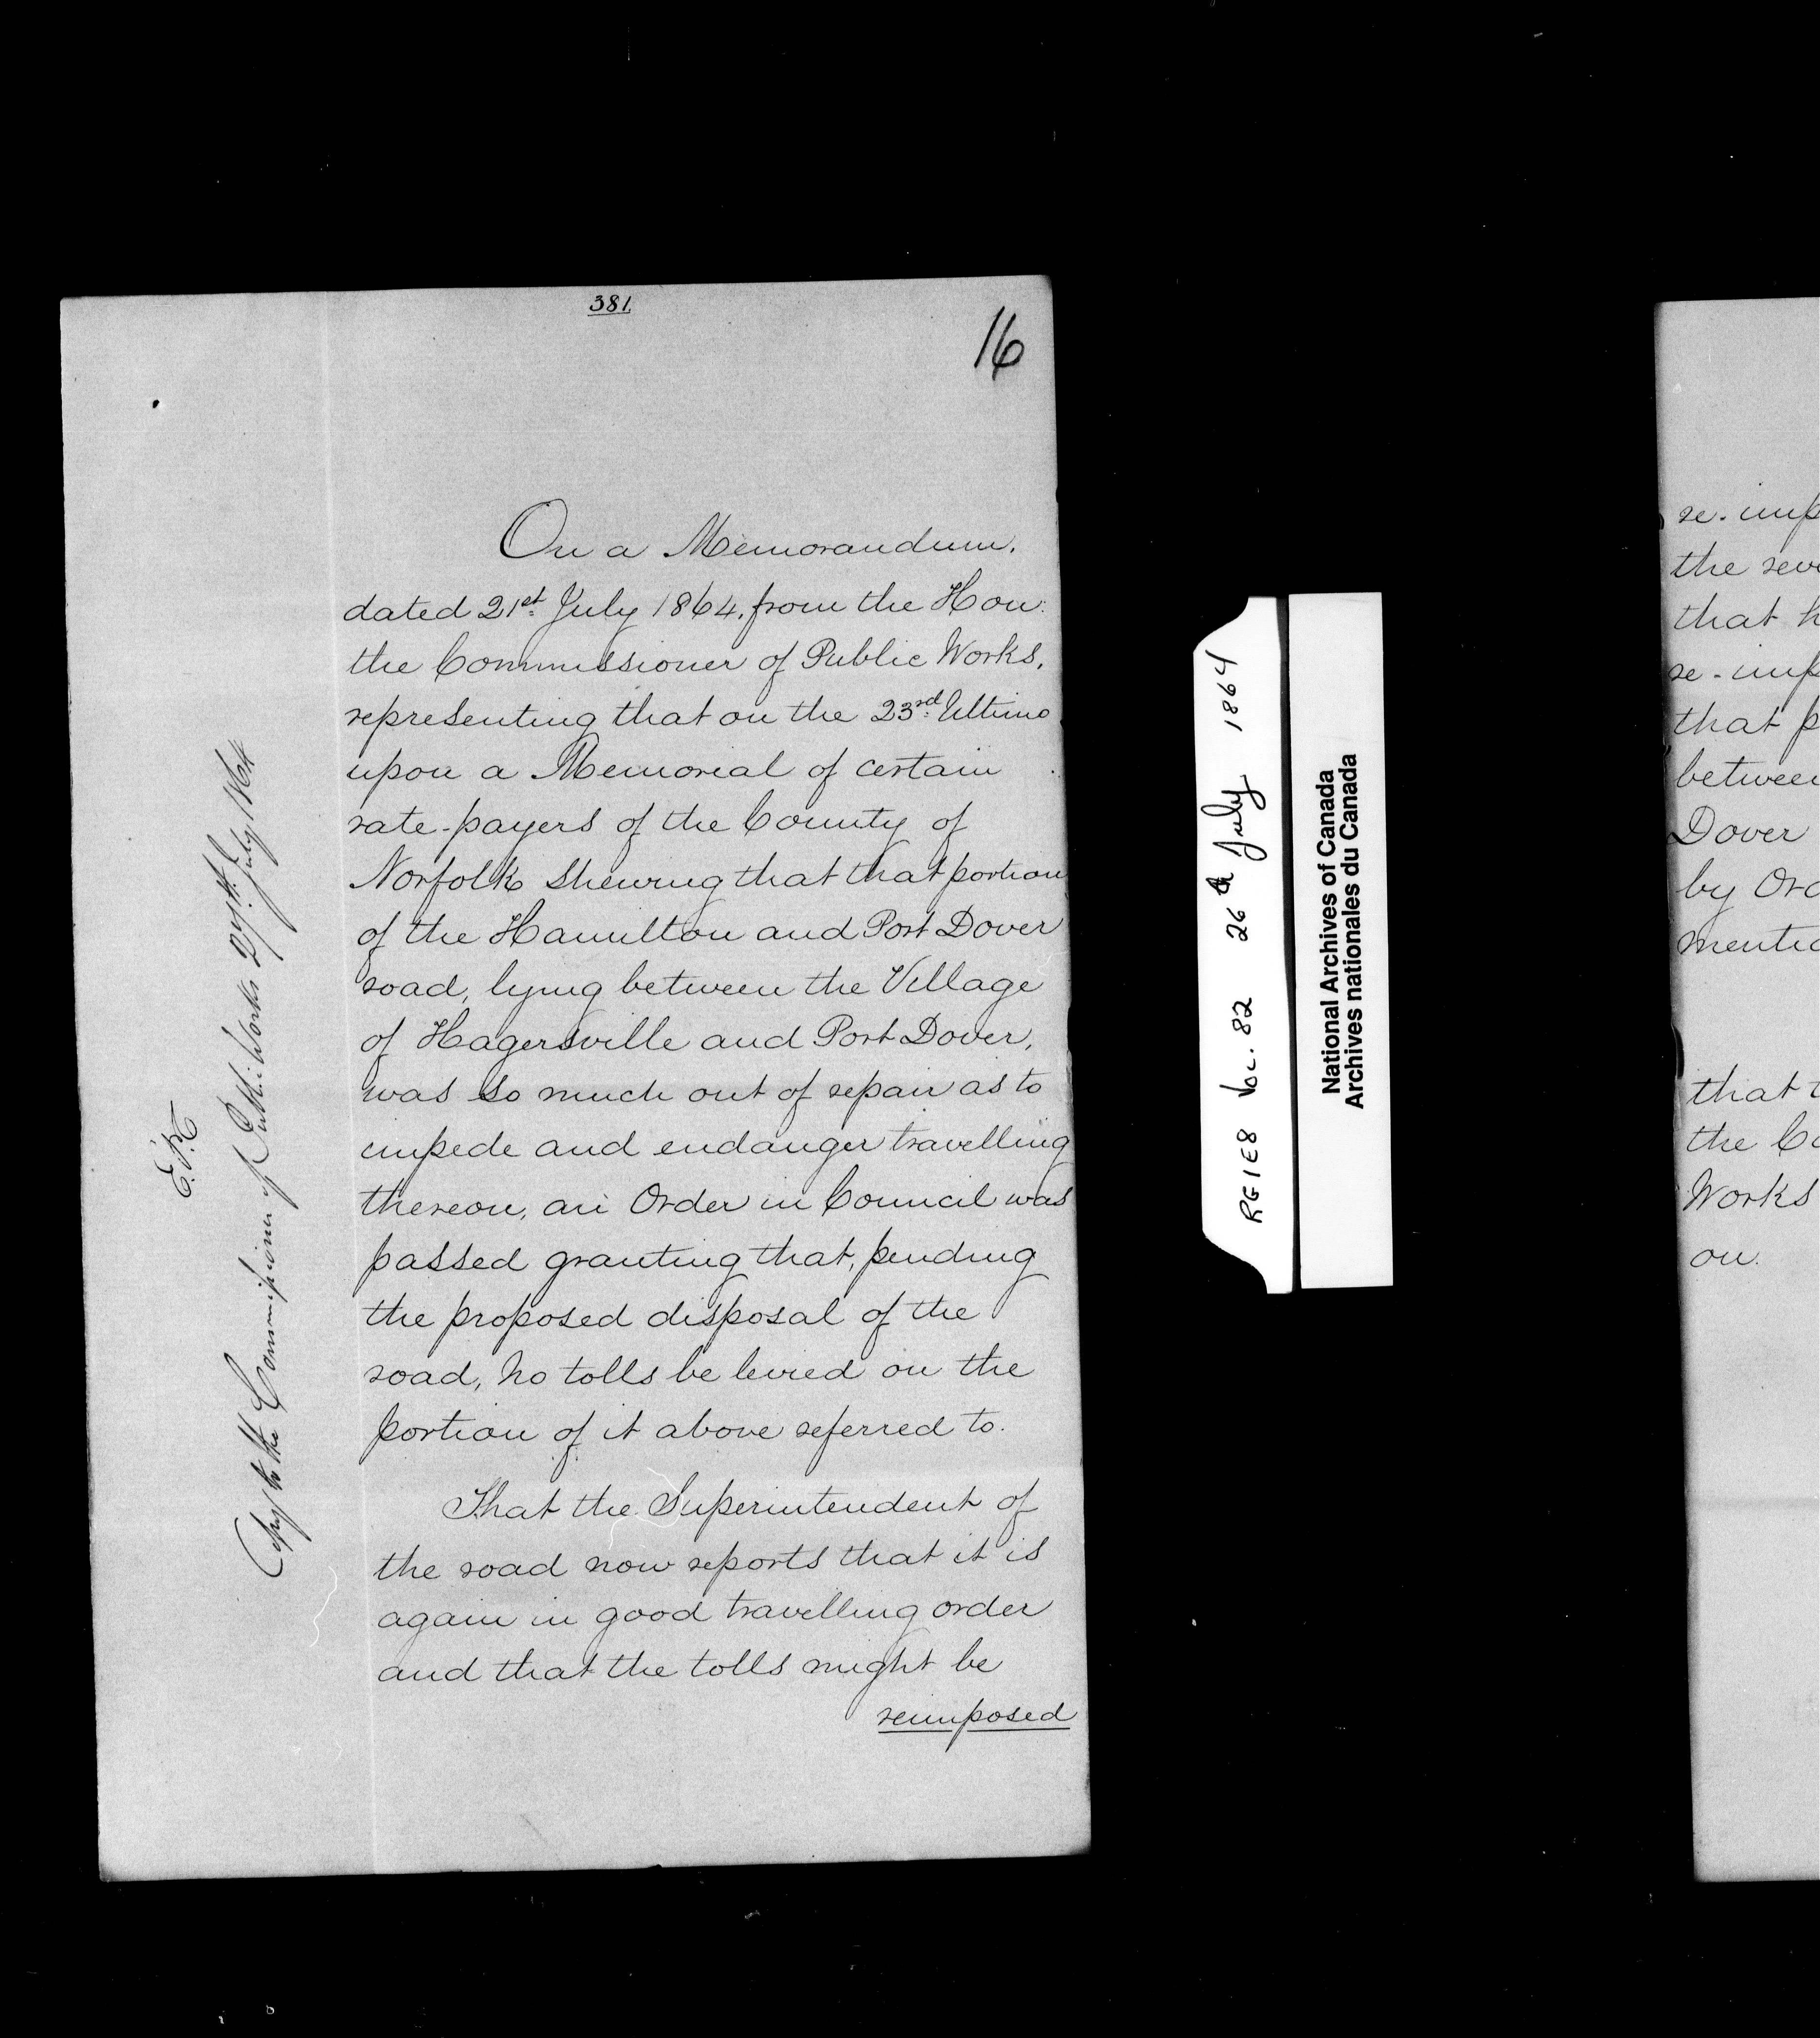 381.
16
On a Memorandum,
dated 21st. July 1864, from the Hon:
the Commissioner of Public Works,
representing that on the 23rd. Ultimo
upon a Memorial of certain
rate-payers of the County of
Norfolk shewing that that portion
of the Hamilton and Port Dover
road, lying between the Village
of Hagersville and Port Dover,
was so much out of repair as to
impede and endanger travelling
thereon, an Order in Council was
passed granting that, pending
the proposed disposal of the
road, no tolls be levied on the
portion of it above referred to.
That the Superintendent of
the road now reports that it is
again in good travelling order
and that the tolls might be
reimposed
Copy to the Commissioner of Public Works 27th. July 1864
RG1E8 Vol. 82 26 July 1864
National Archives of Canada
Archives nationales du Canada
re-imp
the reve
that h
re-imp
that p
between
Dover
by Ord
mentio
that t
the Co
Works
on.